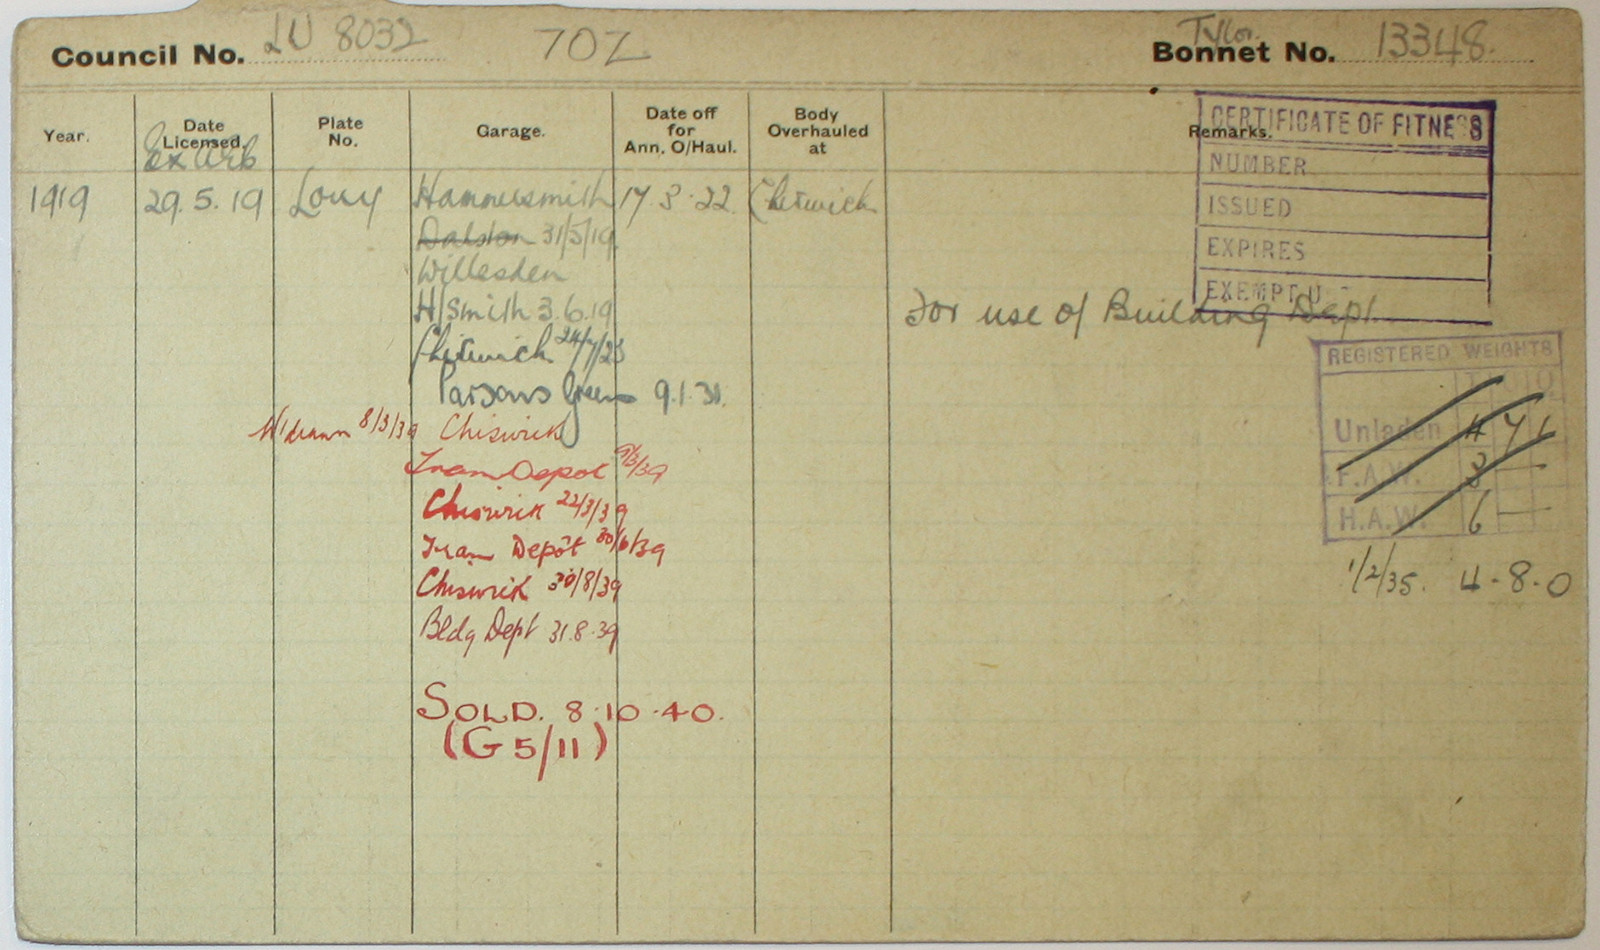 Council No. LU 8032 702 Tylor. Bonnet No. 13348.
Year. Date Licensed. Plate No. Garage. Date off for Ann. O/Haul. Body Overhauled at Remarks.
CERTIFICATE OF FITNESS
NUMBER
ISSUED
EXPIRES
EXEMPT U
1919 29.5.19 Lory Hammersmith 17.3.22. Chiswick
Dalston 31/5/19
Willesden
H/smith 3.6.19
For use of Building Dept.
Chiswick 24/7/23
Parsons Green 9.1.31.
REGISTERED WEIGHTS
Unladen 4 7 1
F.A.W. 3 —
H.A.W. 6 —
1/2/35. 4-8-0
W'drawn 8/3/39 Chiswick
Tram Depot 9/3/39
Chiswick 22/3/39
Tram Depôt 30/6/39
Chiswick 30/8/39
Bldg Dept 31.8.39
SOLD. 8.10.40.
(G5/11)